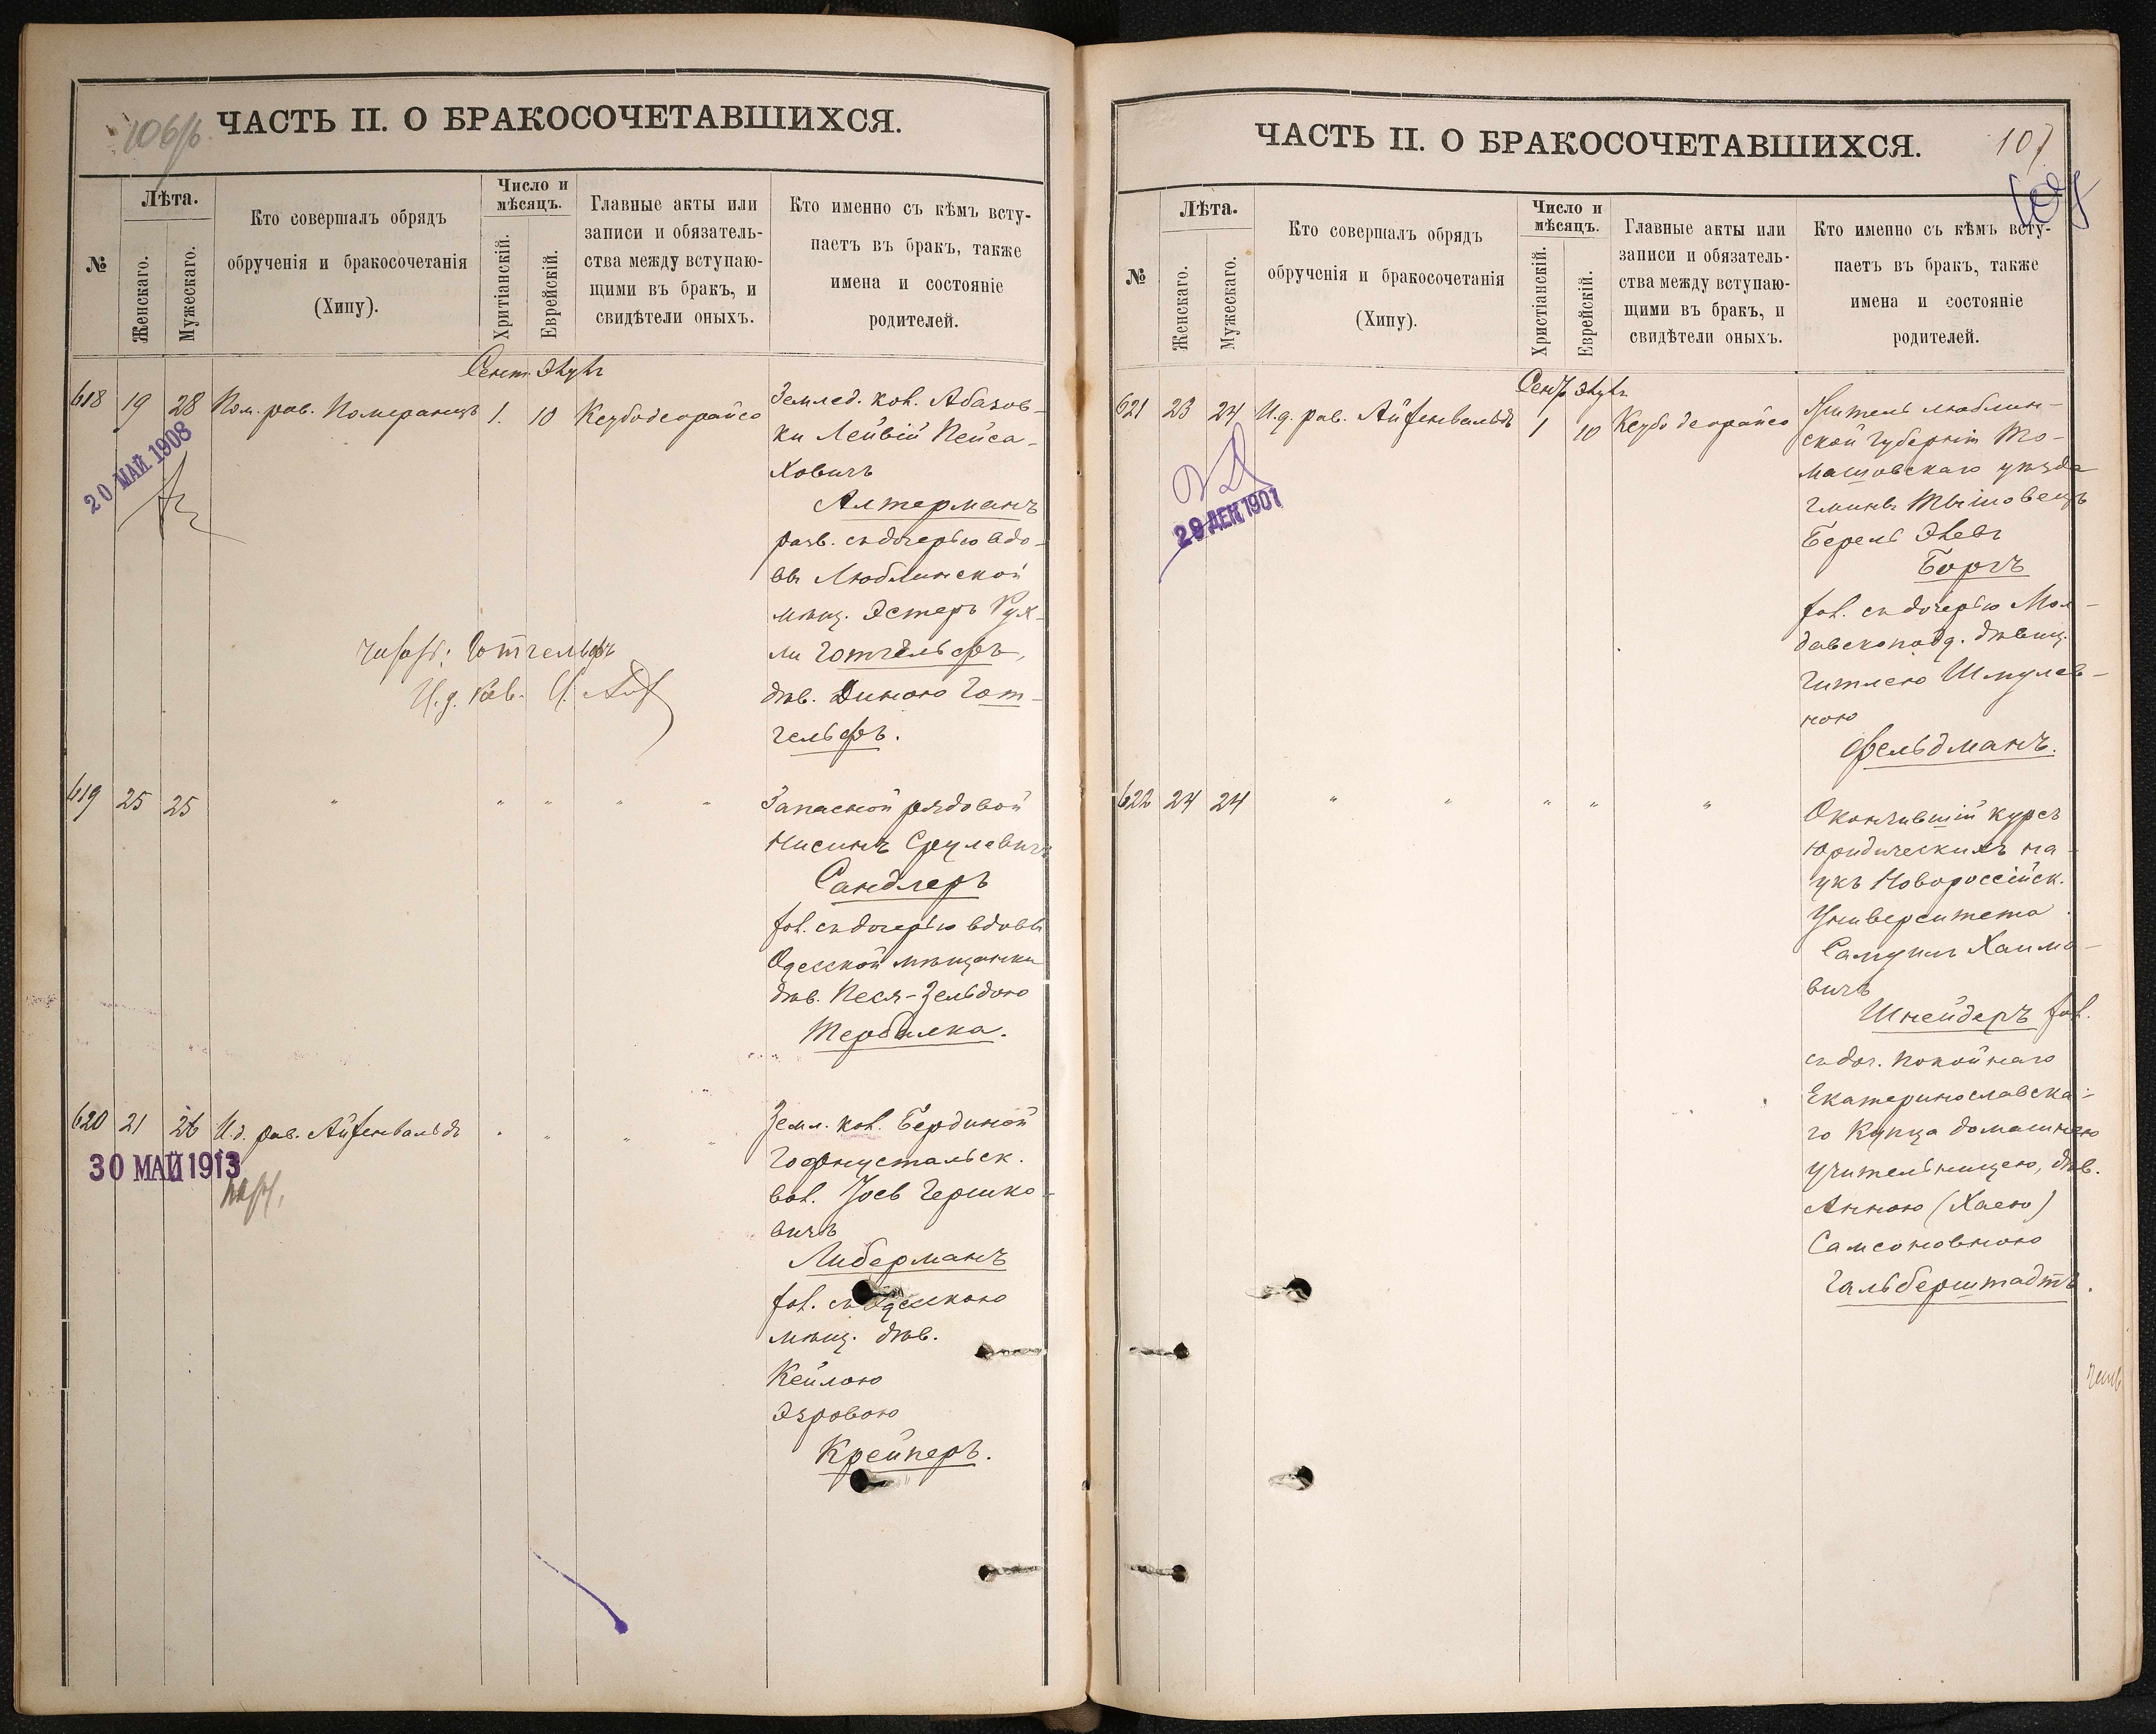 106/б
ЧАСТЬ II. О БРАКОСОЧЕТАВШИХСЯ.
№
Лѣта.
Женскаго.
Мужескаго.
Кто совершалъ обрядъ
обрученія и бракосочетанія
(Хипу).
Число и
мѣсяцъ.
Хритіанскій.
Еврейскій.
Главные акты или
записи и обязатель-
ства между вступаю-
щими въ бракъ, и
свидѣтели оныхъ.
Кто именно съ кѣмъ всту-
паетъ въ бракъ, также
имена и состояніе
родителей.
Сент. Элулъ
618 19 28 Пом. рав. Померанцъ 1. 10 Ксубодеорайсо
Землед. кол. Абазов-
ки Лейвій Пейса-
ховичъ
Алтерманъ
разв. съ дочерью вдо-
вы Люблинской
мѣщ. Эстеръ Рух-
ли Готгельфъ,
дѣв. Диною Гот-
гельфъ.
20 МАЙ 1908
Готгельфъ
И. д. Рав.
619 25 25 " " " " "
Запасной рядовой
Нисинъ Срулевичъ
Сандлеръ
хол. съ дочерью вдовы
Одесской мѣщанки
дѣв. Песя-Зельдою
Тербилка.
620 21 26 И. д. рав. Айзенвальдъ " " " "
Земл. кол. Бердиной
Гофнустальск.
вол. Іось Гершко-
вичъ
Либерманъ
хол. съ Одесскою
мѣщ. дѣв.
Кейлою
Эзровою
Крейперъ.
30 МАЙ 1913
ЧАСТЬ II. О БРАКОСОЧЕТАВШИХСЯ.
107
107
№
Лѣта.
Женскаго.
Мужескаго.
Кто совершалъ обрядъ
обрученія и бракосочетанія
(Хипу).
Число и
мѣсяцъ.
Христіанскій.
Еврейскій.
Главные акты или
записи и обязатель-
ства между вступаю-
щими въ бракъ, и
свидѣтели оныхъ.
Кто именно съ кѣмъ всту-
паетъ въ бракъ, также
имена и состояніе
родителей.
Сент. Элулъ
621 23 24 И. д. рав. Айзенвальдъ 1 10 Ксубо деорайсо
Житель Люблин-
ской губерніи То-
машовскаго уѣзда
гмины Тышовецъ
Берель Элевъ
Боргъ
хол. съ дочерью Мол-
давскоподд. дѣвиц.
Гитлею Шмулев-
ною
Фельдманъ.
29 ДЕК 1901
622 24 24 " " " " "
Окончившій курсъ
юридическихъ на-
укъ Новороссійск.
Университета
Самуилъ Хаимо-
вичъ
Шнейдеръ хол.
съ доч. покойнаго
Екатеринославска-
го Купца домашнею
учительницею, дѣв.
Анною (Хаею)
Самсоновною
Гальберштадтъ.